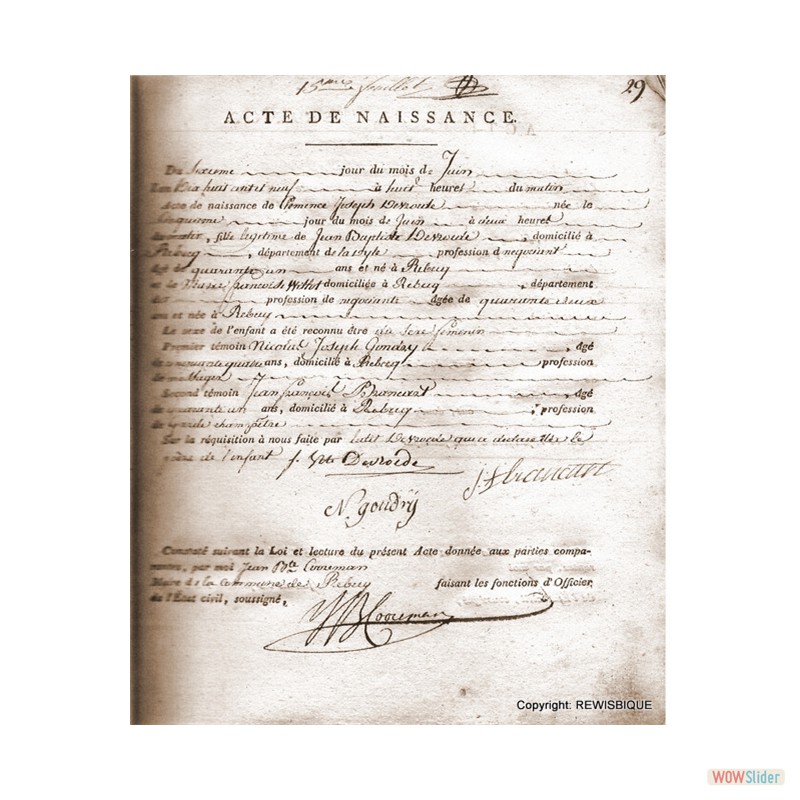 15me feuillet
29
ACTE DE NAISSANCE.
Du Sixieme jour du mois de Juin
L'an Dix huit cent et neuf à huit heures du matin
Acte de naissance de Clemence Joseph Devroede née le
Cinquieme jour du mois de Juin à deux heures
fille legitime de Jean Baptiste Devroede, domicilié à
Rebecq, département de la Dyle profession d negociant
âgé de quarante un ans et né à Rebecq
et de françoise Willot domiciliée à Rebecq, département
profession de negociante âgée de quarante deux
ans et née à Rebecq
Le sexe de l'enfant a été reconnu être du Sexe femenin
Premier témoin Nicolas Joseph Goudry, âgé
ans, domicilié à Rebecq profession
Second témoin Jean françois Brancart, âgé
de quarante un ans, domicilié à Rebecq, profession
de garde champêtre
Sur la réquisition à nous faite par ledit Devroede que a declaré être le
père de l'enfant j. Bte Devroede
J. f Brancart
N. goudrÿ
Constaté suivant la Loi et lecture du présent Acte donnée aux parties compa-
rantes, par moi Jean Bte Cooreman
Maire de la Commune de Rebecq faisant les fonctions d'Officier
de l'État civil, soussigné,
JB Cooreman
Copyright: REWISBIQUE
WOWSlider